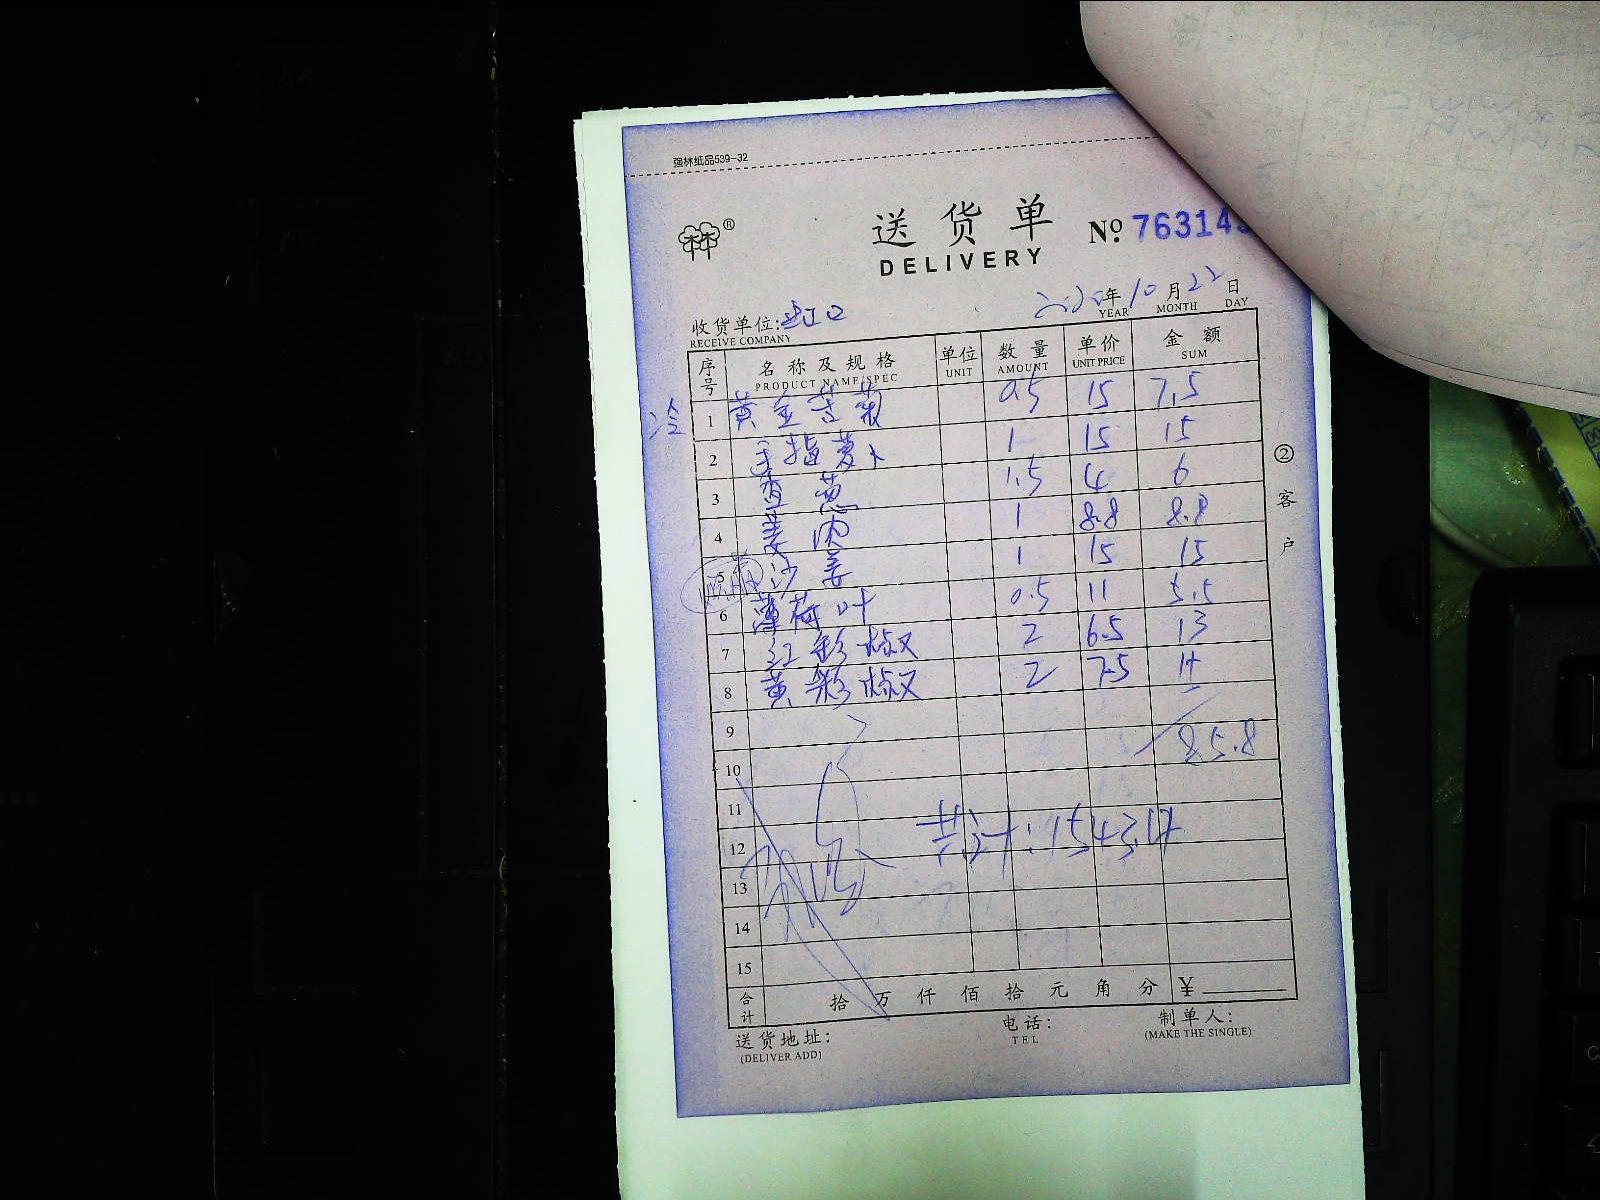 强林纸品539-32
林林®
送货单
DELIVERY
№ 763143
收货单位:
RECEIVE COMPANY
年 10 月 22 日
YEAR MONTH DAY
序号 名称及规格 单位 数量 单价 金额
PRODUCT NAME/SPEC UNIT AMOUNT UNIT PRICE SUM
冷
1 黄金苦菊 0.5 15 7.5
2 手指萝卜 1 15 15
3 香葱 1.5 4 6
4 姜肉 1 8.8 8.8
5 沙姜 1 15 15
6 薄荷叶 0.5 11 5.5
7 红彩椒 2 6.5 13
8 黄彩椒 2 7.5 15
9
85.8
10
11
共计:1543.17
12
13
14
15
合计 拾 万 仟 佰 拾 元 角 分 ¥
送货地址: 电话: 制单人:
(DELIVER ADD) TEL (MAKE THE SINGLE)
②客户